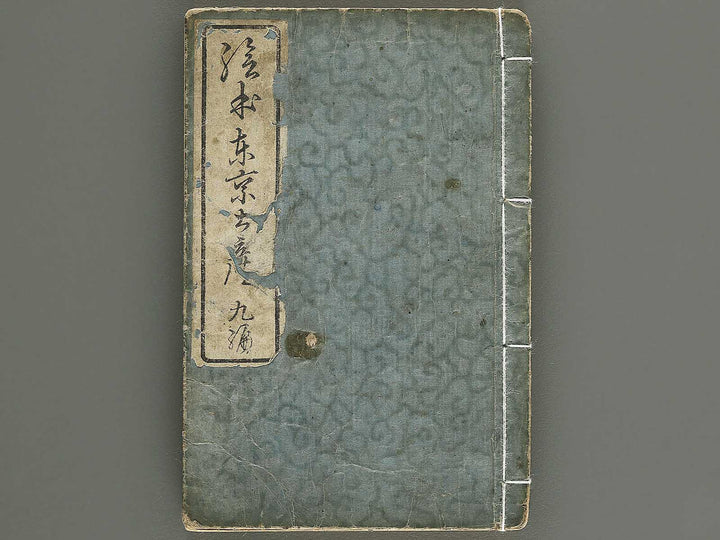 絵本東京土産 九編